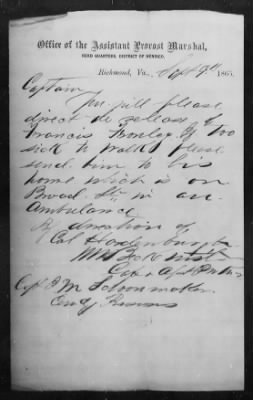 Office of the Assistant Provost Marshal,
HEAD QUARTERS, DISTRICT OF HENRICO,
Richmond, Va., Sept 9th 1865.
Captain
You will please
direct the release of
Francis if too
sick to walk please
send him to his
home which is on
Broad St. in an
Ambulance
By direction of
Col
Capt & Asst
Capt M Schoonmaker
Comdg Prisons